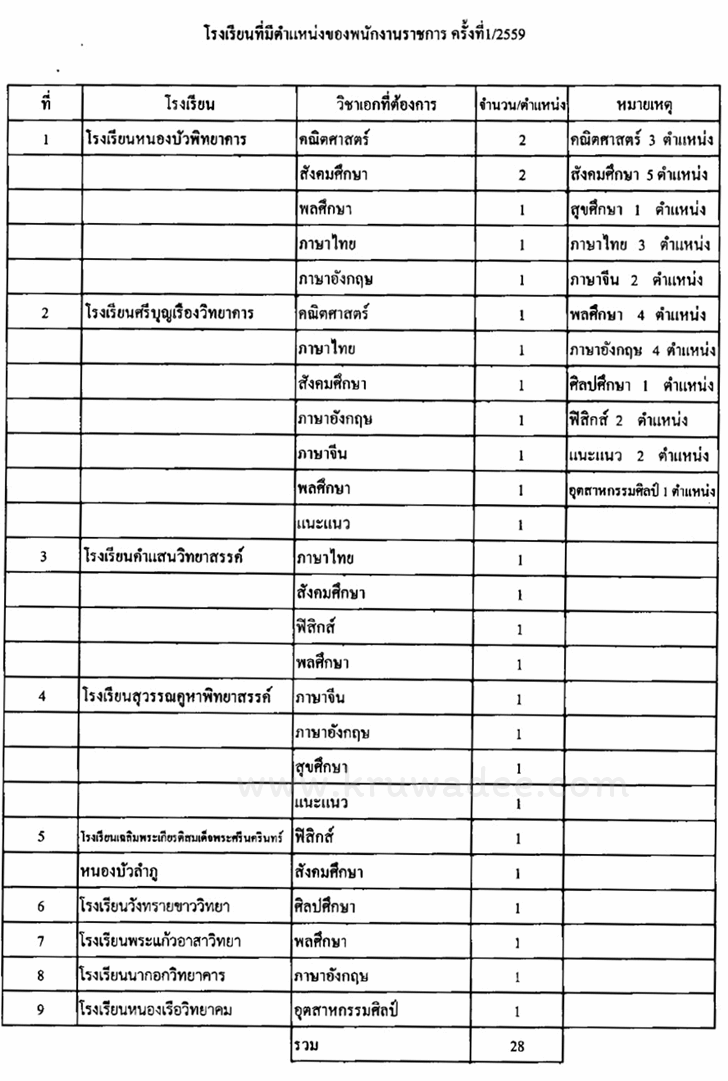 โรงเรียนที่มีตำแหน่งของพนักงานราชการ ครั้งที่1/2559
ที่ โรงเรียน วิชาเอกที่ต้องการ จำนวน/ตำแหน่ง หมายเหตุ
1 โรงเรียนหนองบัวพิทยาคาร คณิตศาสตร์ 2 คณิตศาสตร์ 3 ตำแหน่ง
สังคมศึกษา 2 สังคมศึกษา 5 ตำแหน่ง
พลศึกษา 1 สุขศึกษา 1 ตำแหน่ง
ภาษาไทย 1 ภาษาไทย 3 ตำแหน่ง
ภาษาอังกฤษ 1 ภาษาจีน 2 ตำแหน่ง
2 โรงเรียนศรีบุญเรืองวิทยาคาร คณิตศาสตร์ 1 พลศึกษา 4 ตำแหน่ง
ภาษาไทย 1 ภาษาอังกฤษ 4 ตำแหน่ง
สังคมศึกษา 1 ศิลปศึกษา 1 ตำแหน่ง
ภาษาอังกฤษ 1 ฟิสิกส์ 2 ตำแหน่ง
ภาษาจีน 1 แนะแนว 2 ตำแหน่ง
พลศึกษา 1 อุตสาหกรรมศิลป์ 1 ตำแหน่ง
แนะแนว 1
3 โรงเรียนคำแสนวิทยาสรรค์ ภาษาไทย 1
สังคมศึกษา 1
ฟิสิกส์ 1
พลศึกษา 1
4 โรงเรียนสุวรรณคูหาพิทยาสรรค์ ภาษาจีน 1
ภาษาอังกฤษ 1
สุขศึกษา 1
www.kruwadee.com
แนะแนว 1
5 โรงเรียนเฉลิมพระเกียรติสมเด็จพระศรีนครินทร์ ฟิสิกส์ 1
หนองบัวลำภู สังคมศึกษา 1
6 โรงเรียนวังทรายขาววิทยา ศิลปศึกษา 1
7 โรงเรียนพระแก้วอาสาวิทยา พลศึกษา 1
8 โรงเรียนนากอกวิทยาคาร ภาษาอังกฤษ 1
9 โรงเรียนหนองเรือวิทยาคม อุตสาหกรรมศิลป์ 1
รวม 28